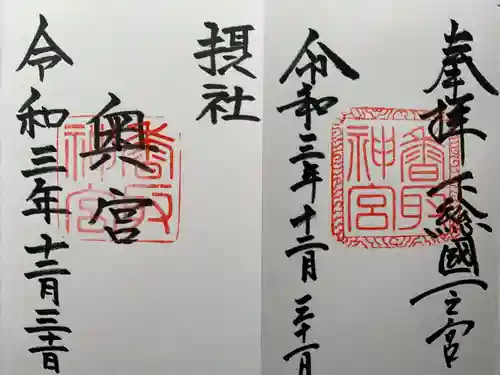 奉拝 下総國一之宮
香取神宮
令和三年十二月三十一日
摂社
奥宮
香取神宮
令和三年十二月三十一日